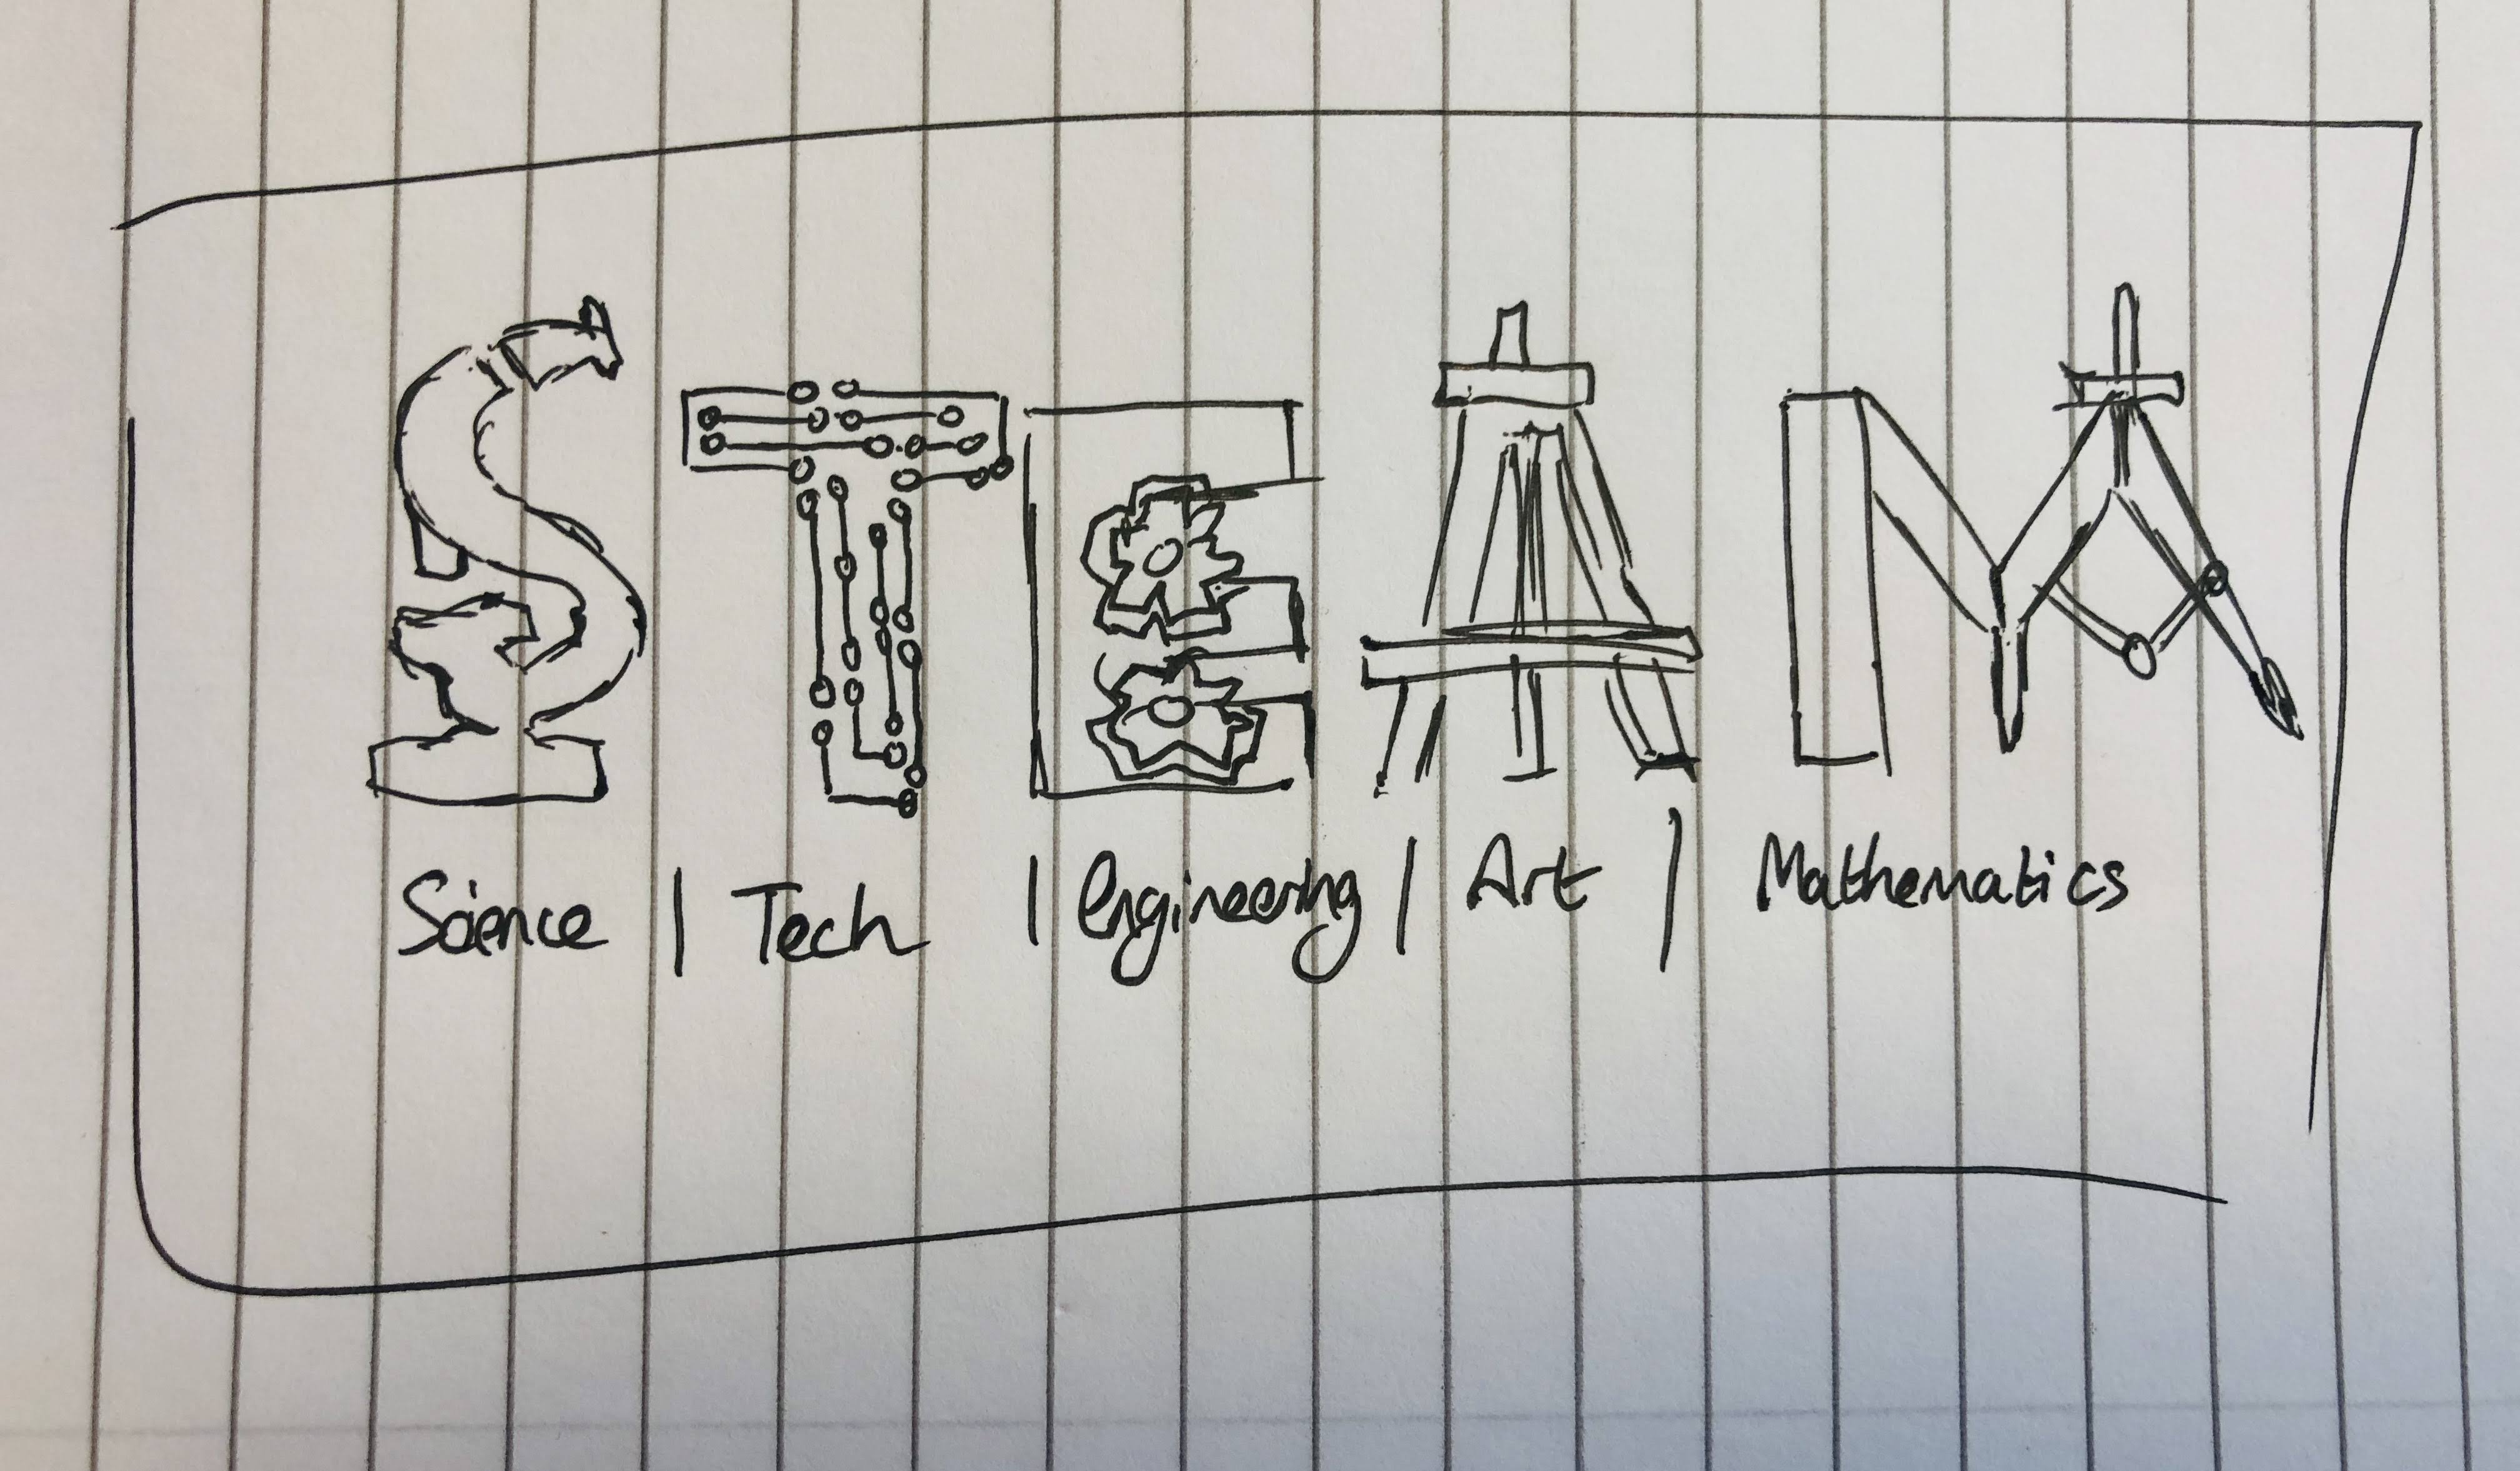 STEAM
Science | Tech | Engineering | Art | Mathematics